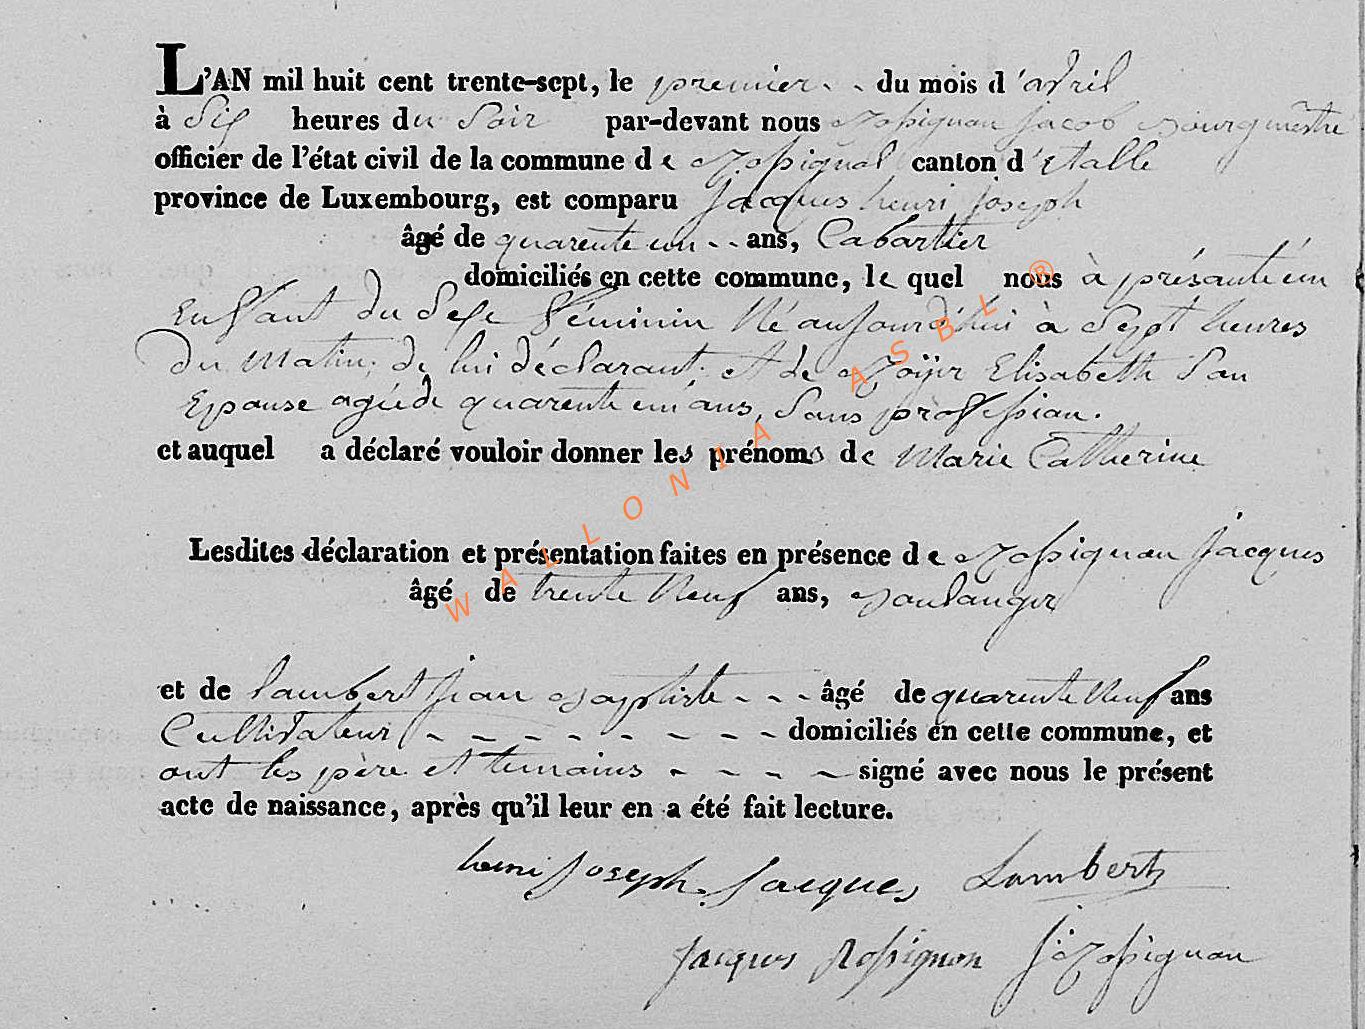 L'AN mil huit cent trente-sept, le premier - - du mois d'avril
à Six heures du Soir par-devant nous Rossignon Jacob Bourgmestre
officier de l'état civil de la commune de Rossignol canton d'Etalle
province de Luxembourg, est comparu Jacques henri Joseph
âgé de quarente un - - ans, Cabartier
domiciliés en cette commune, le quel nous à présanté un
Enffant du Sexe Féminin Né aujourd'hui à Sept heures
du Matin, de lui déclarant. et de Royer Elisabéth Son
Epouse agéede quarente un ans, Sans proffession.
et auquel a déclaré vouloir donner les prénoms de Marie Catherine
Lesdites déclaration et présentation faites en présence de Rossignon Jacques
âgé de trente Neuf ans, Boulanger
et de Lambert Jean Baptiste - - - âgé de quarente Neuf ans
Cultivateur - - - - - - - - - domiciliés en cette commune, et
ont les père et temoins - - - - signé avec nous le présent
acte de naissance, après qu'il leur en a été fait lecture.
henri Joseph Jacques Lambert
Jacques Rossignon J: Rossignon
WALLONIA ASBL ®